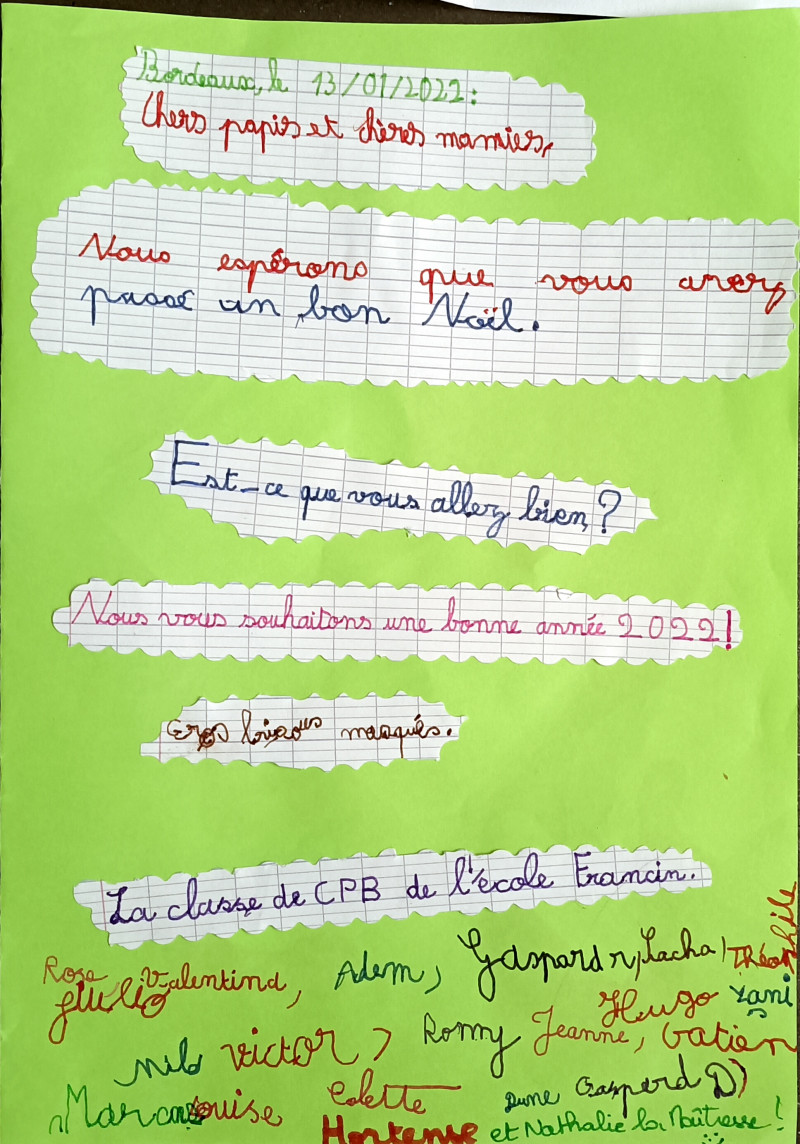 Bordeaux, le 13/01/2022:
Chers papis et chères mamies,
Nous espérons que vous avez
passé un bon Noël.
Est-ce que vous allez bien ?
Nous vous souhaitons une bonne année 2022!
Gros bisous masqués.
La classe de CPB de l'école Francin.
Rose Valentina, Adem, Gaspard r, Sacha, Théophile
Giulio Hugo Yani
Nils Victor, Romy Jeanne, Gatien
Marc Louise Colette Dune Gaspard D)
Hortense et Nathalie la Maîtresse !